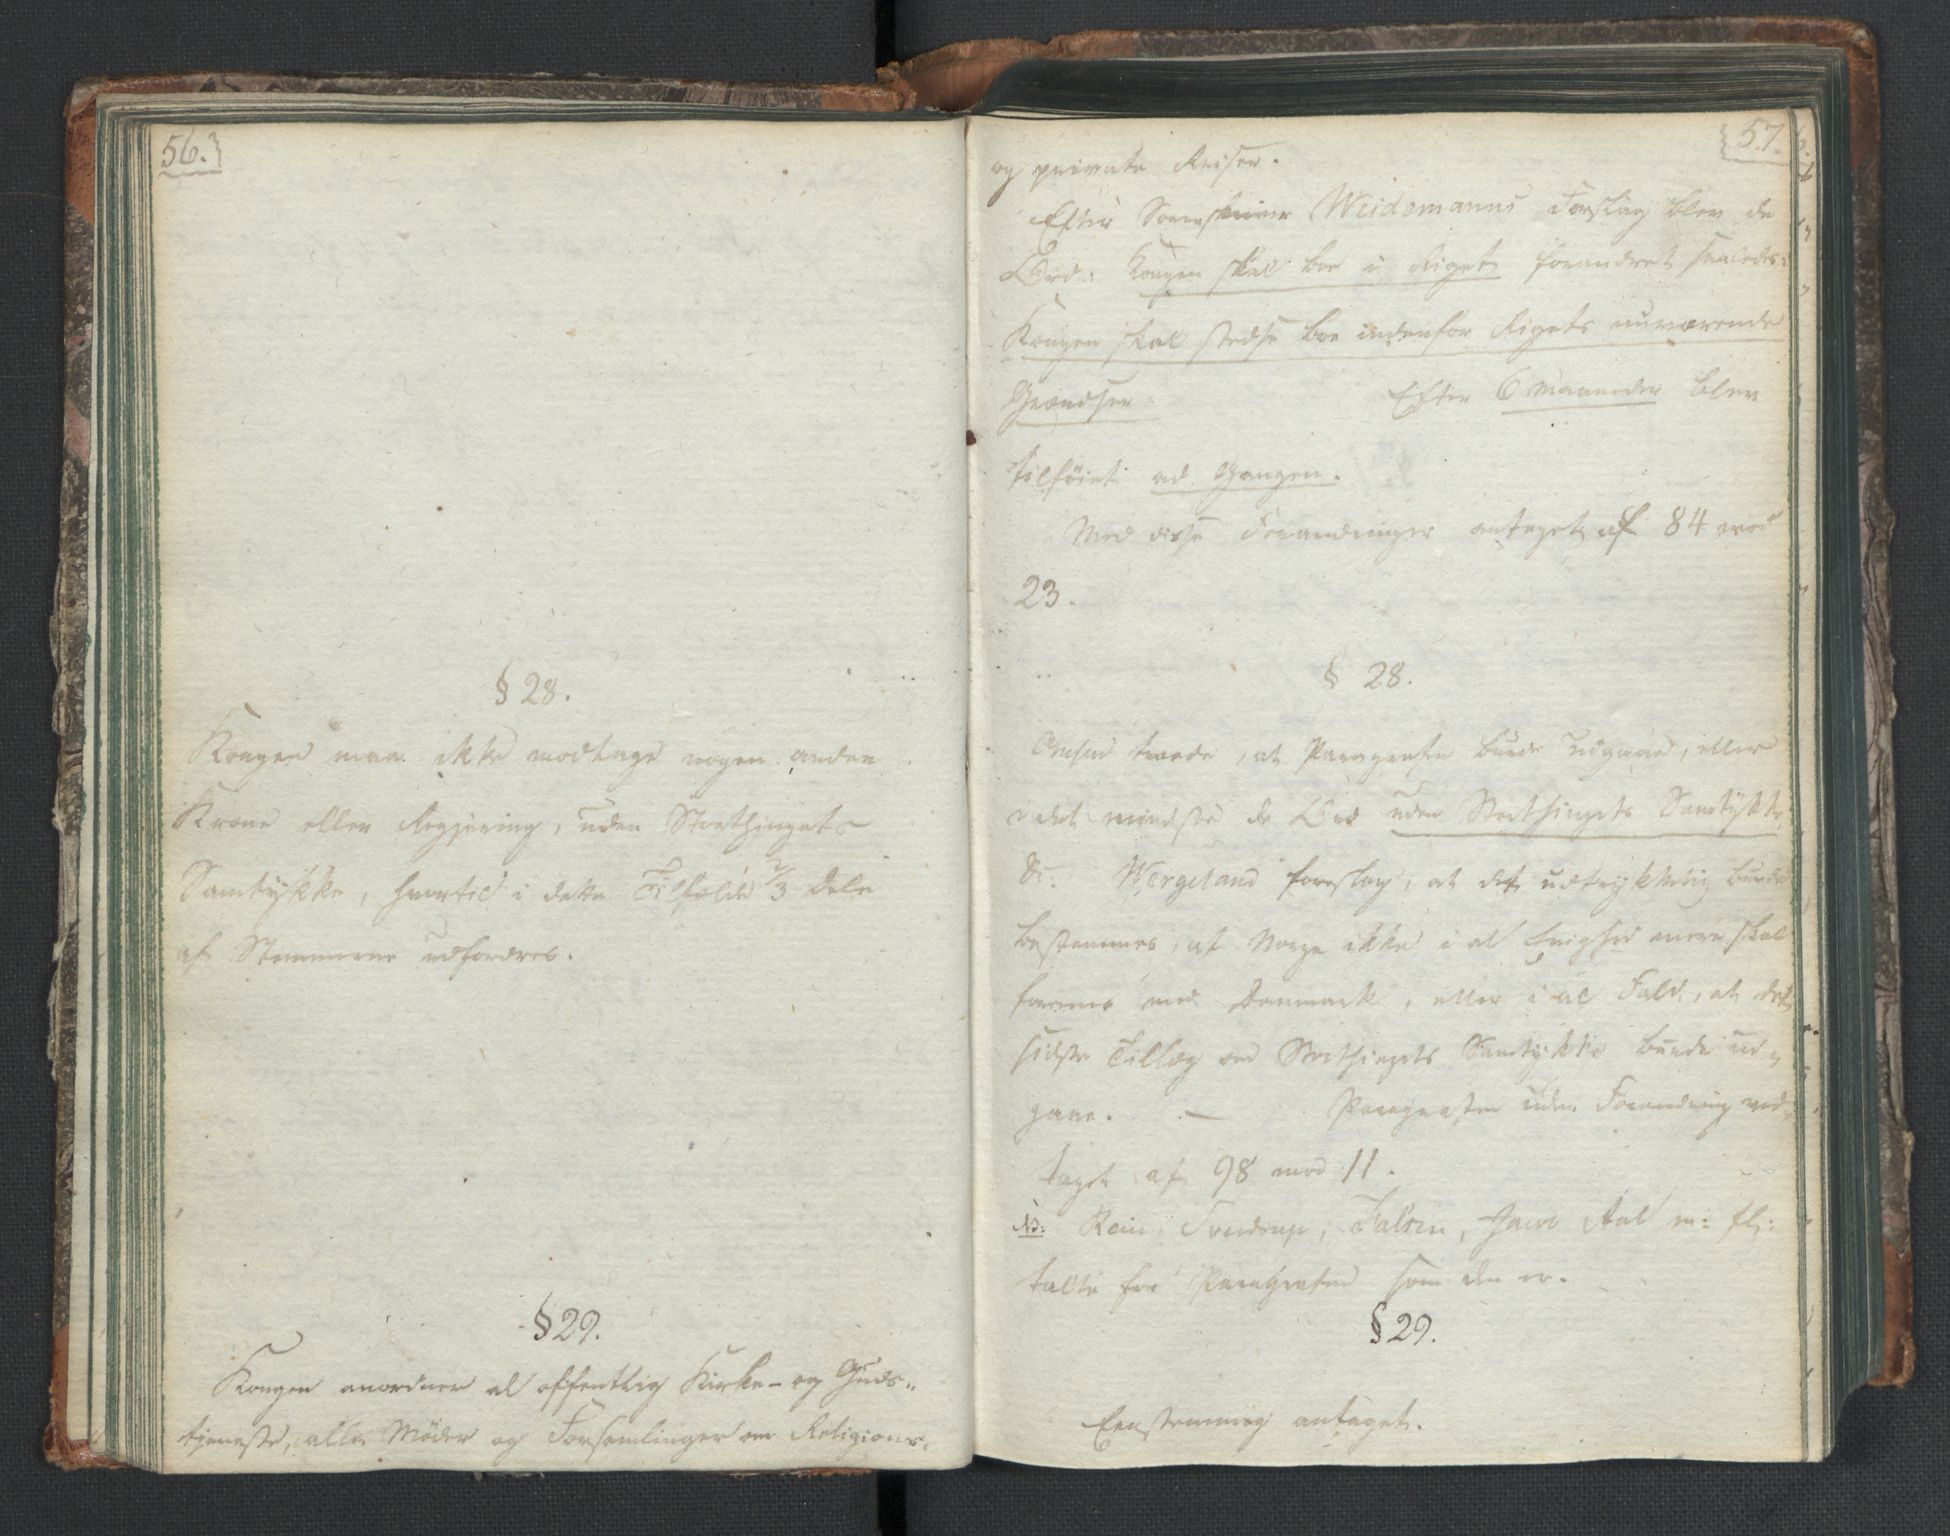 56.
§ 28.
Kongen maa ikke modtage nogen anden
Krone eller Regjering, uden Storthingets
Samtykke, hvortil i dette Tilfælde 2/3 Dele
af Stemmerne udfordres.
§ 29.
Kongen anordner al offentlig Kirke- og Guds-
tjeneste, alle Møder og Forsamlinger om Religions-
57.
og private Reiser.
Efter Sorenskriver Weidemanns Forslag blev de
Ord: Kongen skal boe i Riget forandret saaledes:
Kongen skal stedse boe indenfor Rigets nuværende
Grændser Efter 6 Maaneder blev
tilføiet ad Gangen.
Med disse Forandringer antaget af 84 mod
23.
§ 28.
troede, at Paragrafen burde udgaae, eller
i det mindste de Ord uden Storthingets Samtykke.
Wergeland foreslog, at det udtrykkelig burde
bestemmes, at Norge ikke i al Evighed mere skal
forenes med Danmark, eller i al Fald, at det
sidste Tillæg om Storthingets Samtykke burde ud-
gaae. — Paragrafen uden Forandring ved-
taget af 98 mod 11.
NB: Rein, Sverdrup, Falsen, Jacob Aal m: fl:
talte for Paragrafen som den er.
§ 29.
Eenstemmig antaget.